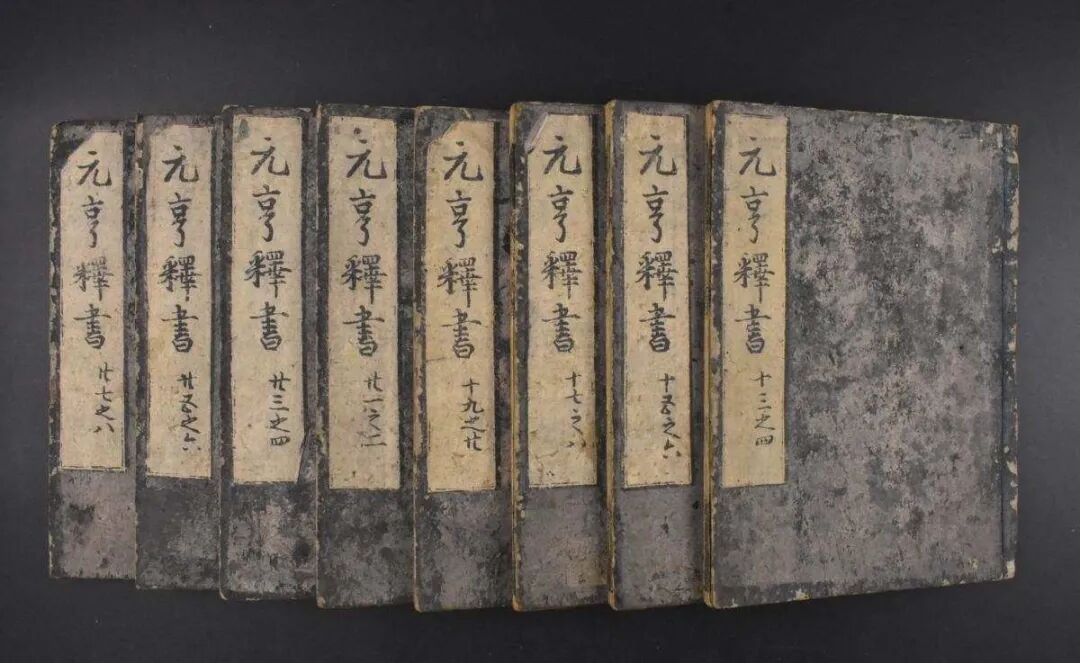 元亨釋書 十三之四
元亨釋書 十五之六
元亨釋書 十七之八
元亨釋書 十九之廿
元亨釋書 廿一之二
元亨釋書 廿三之四
元亨釋書 廿五之六
元亨釋書 廿七之八